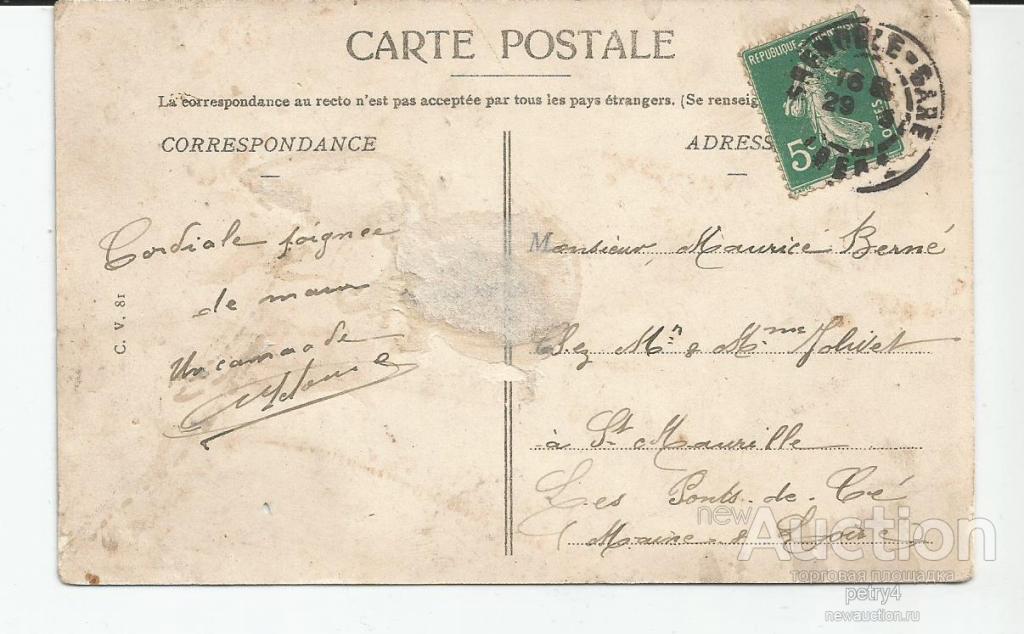 CARTE POSTALE
La correspondance au recto n'est pas acceptée par tous les pays étrangers. (Se renseig
CORRESPONDANCE
ADRESS
RÉPUBLIQUE
5
POSTES
GRENOBLE-GARE
16
29
Cordiale poignée
de main
Un camarade
C. V. 81
Monsieur Maurice Berné
Chez Mr & Mme Jolivet
à St Maurille
Les Ponts-de-Cé
(Maine-&-Loire)
newAuction
торговая площадка
petry4
newauction.ru